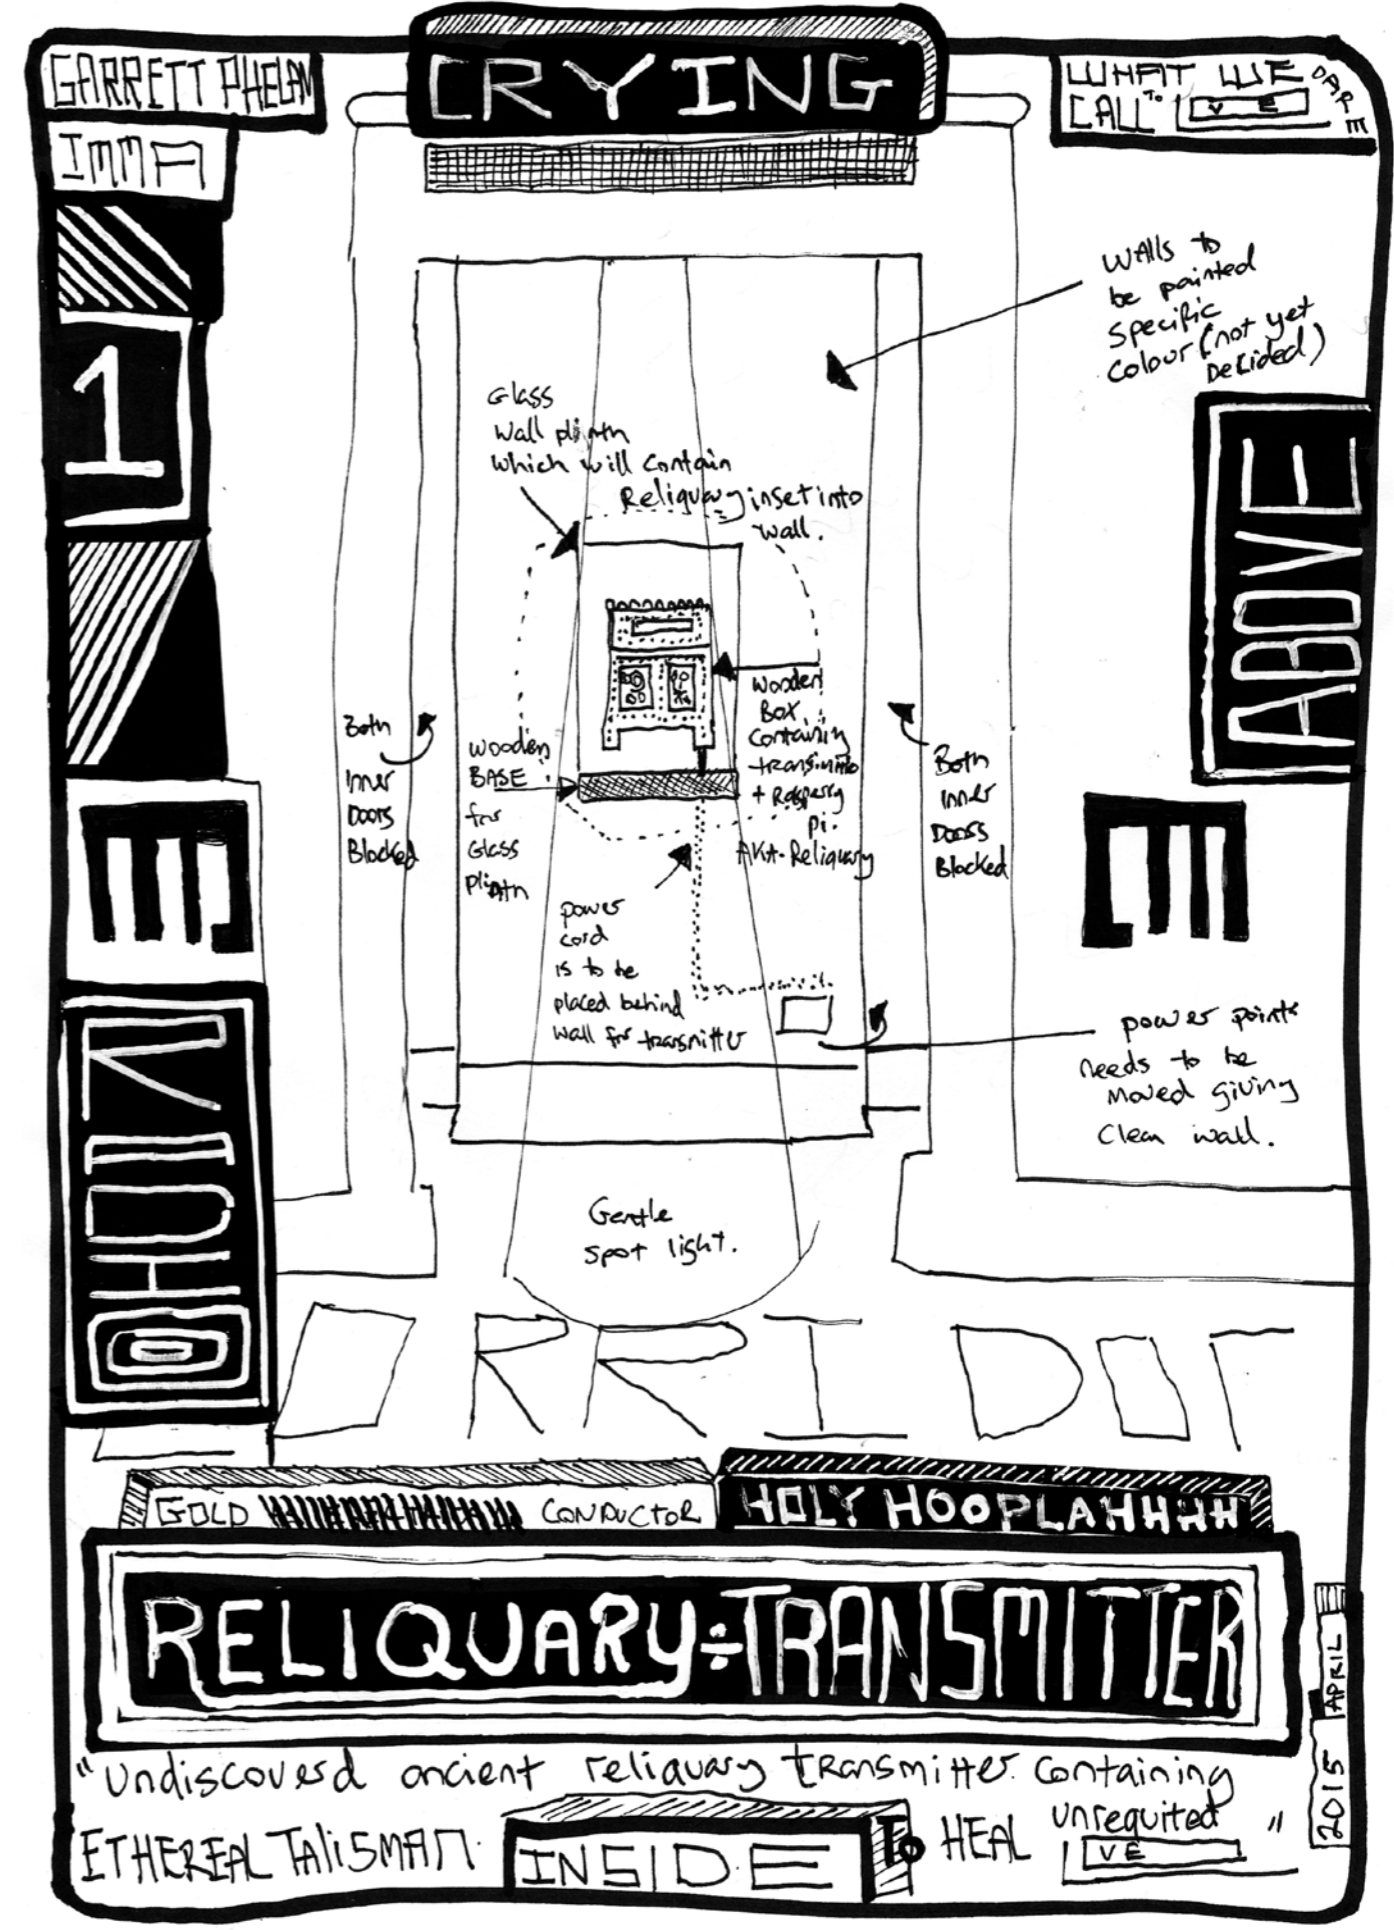 CRYING
GARRETT PHELAN
IMMA
WHAT WE
DARE
TO
CALL
VE
1
WALLS to
be painted
specific
colour (not yet
Decided)
Glass
Wall plinth
which will contain
Reliquary inset into
wall.
ABOVE
Both
Inner
Doors
Blocked
wooden
BASE
for
Glass
plinth
wooden
BOX
containing
+ Raspberry
Pi.
AKA-Reliquary
Both
Inner
Doors
Blocked
power
cord
is to be
placed behind
wall for transmitter
power points
needs to be
moved giving
clean wall.
E
E
Gentle
spot light.
CORRIDOR
GOLD
CONDUCTOR
HOLY HOOPLAHHHH
RELIQUARY÷TRANSMITTER
APRIL
2015
"Undiscoverd ancient reliquary transmitter. Containing
ETHEREAL TALISMAN.
INSIDE
To HEAL
unrequited
VE
"